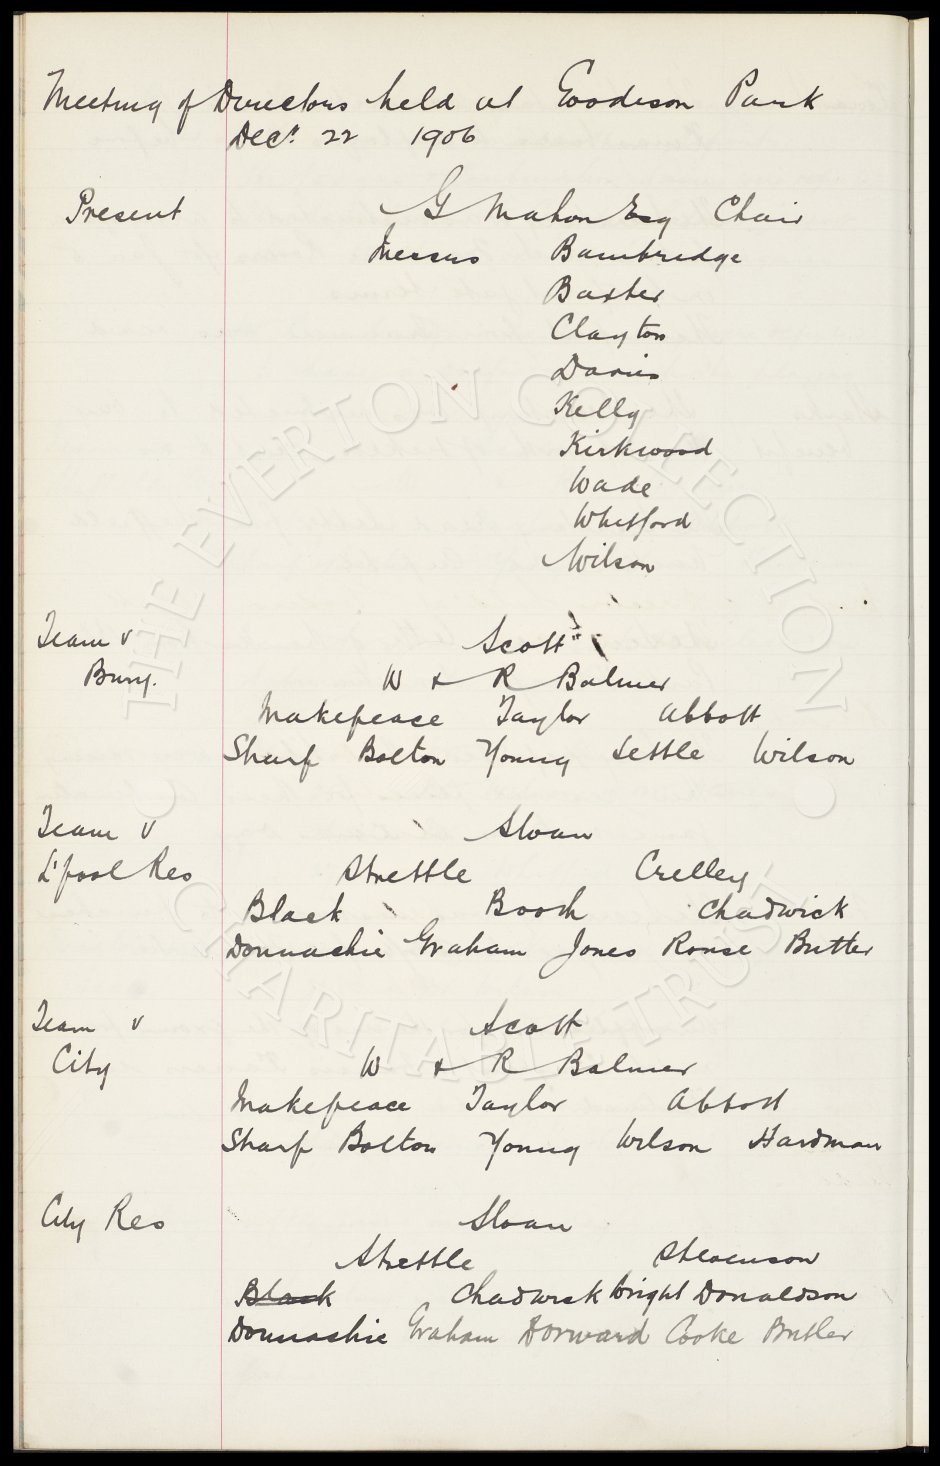 Meeting of Directors held at Goodison Park
Decr. 22 1906
Present G Mahon Esq Chair
Messrs Bambridge
Baxter
Clayton
Davies
Kelly
Kirkwood
Wade
Whitford
Wilson
Team v Scott
Bury. W & R Balmer
Makepeace Taylor Abbott
Sharp Bolton Young Settle Wilson
Team v Sloan
L'pool Res Strettle Crelley
Black Booth Chadwick
Donnachie Graham Jones Rouse Butler
Team v Scott
City W & R Balmer
Makepeace Taylor Abbott
Sharp Bolton Young Wilson Hardman
City Res Sloan
Strettle Stevenson
Black Chadwick Wright Donaldson
Donnachie Graham Dorward Cooke Butler
THE EVERTON COLLECTION
CHARITABLE TRUST